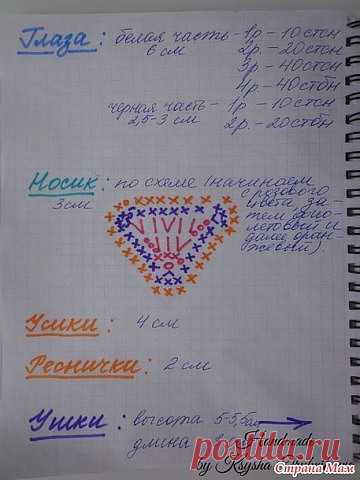 Глаза: белая часть – 1р – 10стсн
6 см 2р. – 20стсн
3р – 40стсн
4р – 40стбн
черная часть – 1р – 10стсн
2,5-3 см 2р. – 20стбн
Носик: по схеме (начинаем
3см с розового
цвета, за-
тем фио-
летовый и
далее оран
жевый).
Усики: 4 см
Реснички: 2 см
Ушки: высота 5-5,5см
длина
Handmade
by Ksysha
postila.ru
Страна Мам